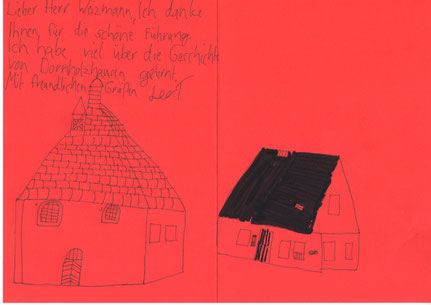 Lieber Herr Waizmann, Ich danke
Ihnen für die schöne Führung.
Ich habe viel über die Geschichte
von Dornholzhausen gelernt.
Mit freundlichen Grüßen